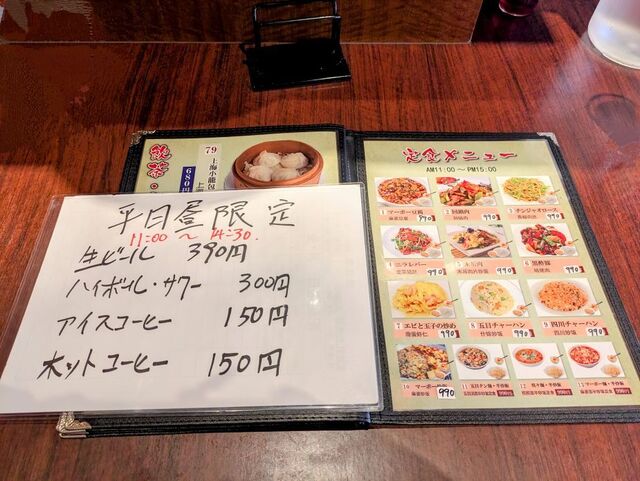 飲茶
79 上海小籠包
680円
平日昼限定
11:00 〜 14:30.
生ビール 390円
ハイボール・サワー 300円
アイスコーヒー 150円
ホットコーヒー 150円
定食メニュー
AM11:00～PM15:00
1 マーボー豆腐
麻婆豆腐 990
2 回鍋肉
回鍋肉 990
3 チンジャオロース
青椒肉絲 990
4 ニラレバー
990
5 木須肉
990
6 黒酢豚
990
7 エビと玉子の炒め
990
8 五目チャーハン
什錦炒飯 990
9 四川チャーハン
四川炒飯 990
10 マーボー
990
11
12
13 マーボー麺・半炒飯